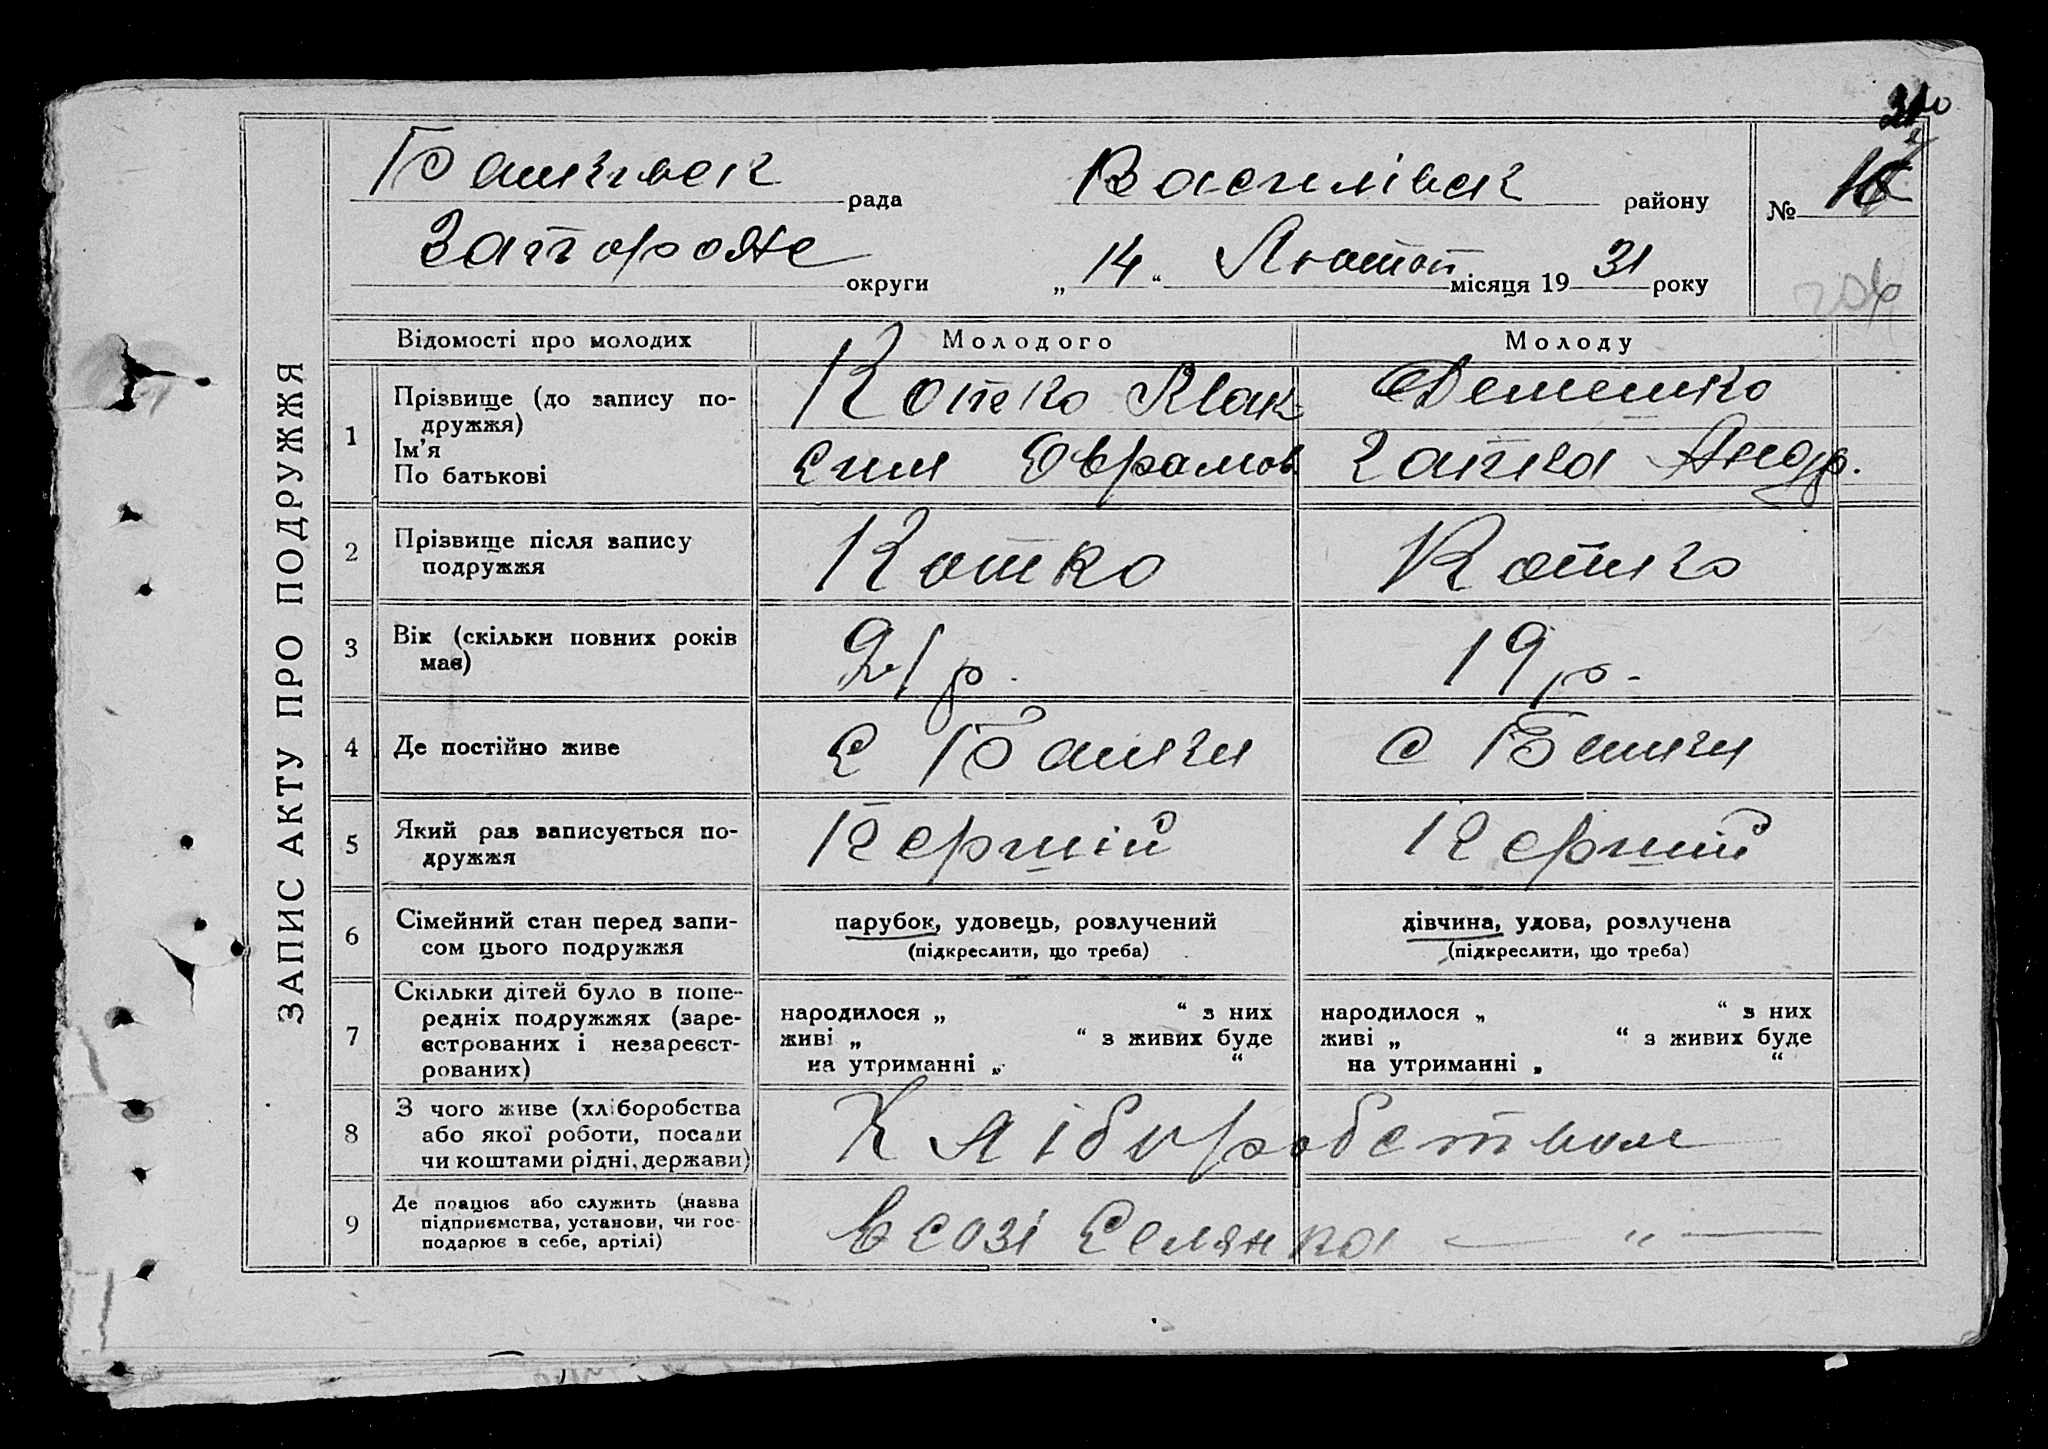 ЗАПИС АКТУ ПРО ПОДРУЖЖЯ
Балківск рада
Василівск району
№
Запорожс округи
„ 14 “ Лютого місяця 19 31 року
Відомості про молодих
Молодого
Молоду
1
Прізвище (до запису по-
дружжя)
Ім'я
По батькові
Котко Мак
сим Оврамов
Демешко
Галька Андр.
2
Прізвище після запису
подружжя
Котко
Котко
3
Вік (скільки повних років
має)
21 р.
19 р.
4
Де постійно живе
с Балки
с Балки
5
Який раз записується по-
дружжя
Перший
Перший
6
Сімейний стан перед запи-
сом цього подружжя
парубок, удовець, розлучений
(підкреслити, що треба)
дівчина, удова, розлучена
(підкреслити, що треба)
7
Скільки дітей було в попе-
редніх подружжях (заре-
єстрованих і незареєст-
рованих)
народилося „ “ з них
живі „ “ з живих буде
на утриманні „ “
народилося „ “ з них
живі „ “ з живих буде
на утриманні „ “
8
З чого живе (хліборобства
або якої роботи, посади
чи коштами рідні, держави)
Хліборобством
9
Де працює або служить (назва
підприємства, установи, чи гос-
подарює в себе, артілі)
в созі Селянка
— „ —